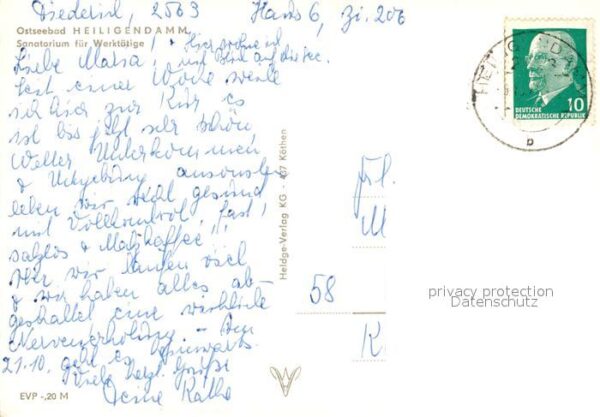 2563 Haus 6, Zi. 206
Ostseebad HEILIGENDAMM
Sanatorium für Werktätige
Hier wohne ich
Liebe Maria! mit Blick auf die See.
Fast eine Woche weile
ich hier zur Kur. Es
ist bis jetzt sehr schön,
Wetter, Unterkommen
& Umgebung
leben wir recht gesund
mit Vollkornbrot, fast
salzlos & Malzkaffee!
Aber wir laufen viel
& wir haben alles ab-
geschaltet eine wirkliche
Nervenerholung. Am
21.10. geht es heimwärts.
Viele herzl. Grüße
Deine Käthe
EVP -,20 M
Heldge-Verlag KG - 437 Köthen
HEILIGENDAMM
b
10
DEUTSCHE
DEMOKRATISCHE REPUBLIK
Frl.
M
58
K
privacy protection
Datenschutz